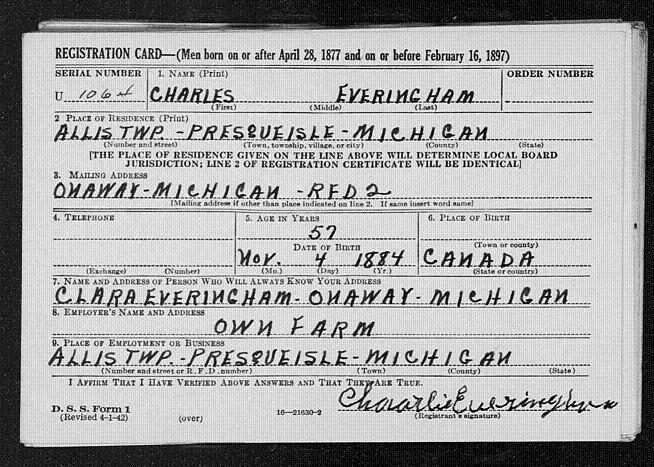 REGISTRATION CARD—(Men born on or after April 28, 1877 and on or before February 16, 1897)
SERIAL NUMBER 1. NAME (Print) ORDER NUMBER
U 1064 CHARLES EVERINGHAM
(First) (Middle) (Last)
2 PLACE OF RESIDENCE (Print)
ALLIS TWP. - PRESQUE ISLE - MICHIGAN
(Number and street) (Town, township, village, or city) (County) (State)
[THE PLACE OF RESIDENCE GIVEN ON THE LINE ABOVE WILL DETERMINE LOCAL BOARD
JURISDICTION; LINE 2 OF REGISTRATION CERTIFICATE WILL BE IDENTICAL]
3. MAILING ADDRESS
ONAWAY - MICHIGAN - RFD 2
[Mailing address if other than place indicated on line 2. If same insert word same]
4. TELEPHONE 5. AGE IN YEARS 6. PLACE OF BIRTH
57
(Town or county)
DATE OF BIRTH
Nov. 4 1884 CANADA
(Exchange) (Number) (Mo.) (Day) (Yr.) (State or country)
7. NAME AND ADDRESS OF PERSON WHO WILL ALWAYS KNOW YOUR ADDRESS
CLARA EVERINGHAM - ONAWAY - MICHIGAN
8. EMPLOYER'S NAME AND ADDRESS
OWN FARM
9. PLACE OF EMPLOYMENT OR BUSINESS
ALLIS TWP. - PRESQUE ISLE - MICHIGAN
(Number and street or R. F. D. number) (Town) (County) (State)
I AFFIRM THAT I HAVE VERIFIED ABOVE ANSWERS AND THAT THEY ARE TRUE.
D. S. S. Form 1
(Revised 4-1-42) (over) 16—21630-2 Charlie Everingham
(Registrant's signature)